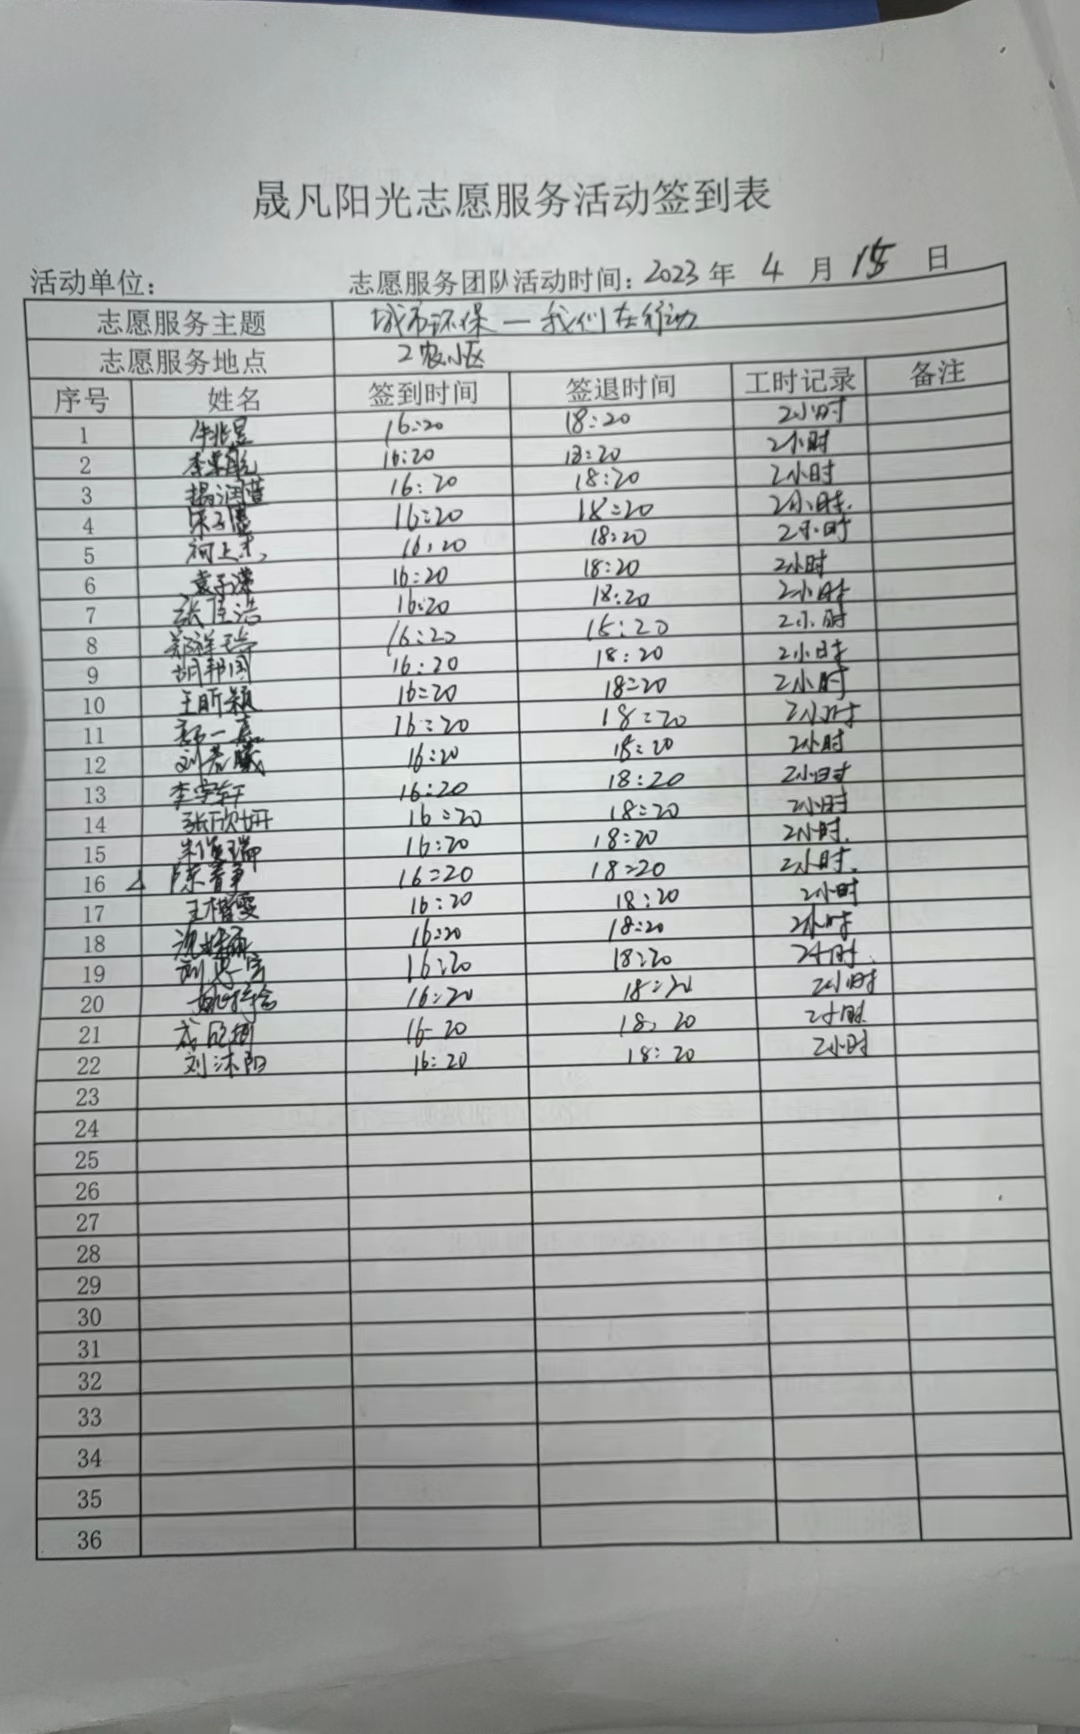 晟凡阳光志愿服务活动签到表
活动单位: 志愿服务团队活动时间: 2023 年 4 月 15 日
志愿服务主题 城市环保—我们在行动
志愿服务地点 工农小区
序号 姓名 签到时间 签退时间 工时记录 备注
1 16:20 18:20 2小时
2 16:20 18:20 2小时
3 杨润萱 16:20 18:20 2小时
4 16:20 18:20 2小时.
5 16:20 18:20 2小时
6 袁子溁 16:20 18:20 2小时
7 张恒浩 16:20 18:20 2小时
8 郑祥瑞 16:20 18:20 2小时
9 胡邦国 16:20 18:20 2小时
10 王昕颖 16:20 18:20 2小时
11 郭一嘉 16:20 18:20 2小时
12 刘若曦 16:20 18:20 2小时
13 李宇轩 16:20 18:20 2小时
14 张欣妍 16:20 18:20 2小时
15 16:20 18:20 2小时.
16 陈菁菲 16:20 18:20 2小时.
17 16:20 18:20 2小时
18 16:20 18:20 2小时
19 刘思宇 16:20 18:20 2小时.
20 16:20 18:20 2小时
21 16:20 18:20 2小时
22 刘沐阳 16:20 18:20 2小时
23
24
25
26
27
28
29
30
31
32
33
34
35
36